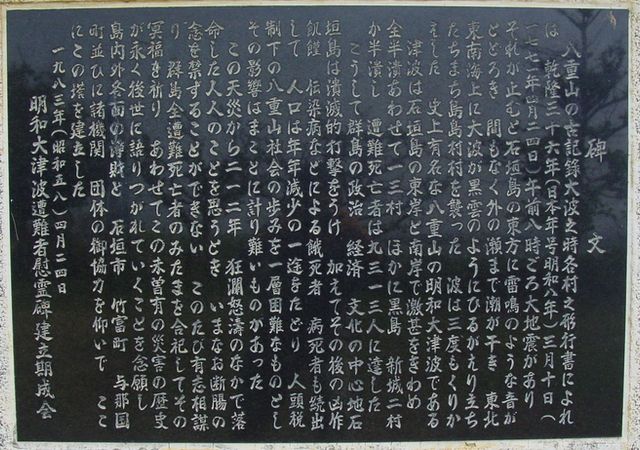 碑文
八重山の古記録大波之時各村之形行書によれ
ば 乾隆三十六年(日本年号明和八年)三月十日(
一七七一年四月二四日)午前八時ごろ大地震があり
それが止むと石垣島の東方に雷鳴のような音が
とどろき 間もなく外の瀬まで潮が干き 東北
東南海上に大波が黒雲のようにひるがえり立ち
たちまち島島村村を襲った 波は三度もくりか
えした 史上有名な八重山の明和大津波である
津波は石垣島の東岸と南岸で激甚をきわめ
全半潰あわせて一三村 ほかに黒島 新城二村
が半潰し 遭難死亡者は九三一三人に達した
こうして群島の政治 経済 文化の中心地石
垣島は潰滅的打撃をうけ 加えてその後の凶作
飢饉 伝染病などによる餓死者 病死者も続出
して 人口は年年減少の一途をたどり 人頭税
制下の八重山社会の歩みを一層困難なものとし
その影響はまことに計り難いものがあった
この天災から二一二年 狂瀾怒濤のなかで落
命した人人のことを思うとき いまなお断腸の
念を禁ずることができない このたび有志相謀
り 群島全遭難死亡者のみたまを合祀してその
冥福を祈り あわせてこの未曽有の災害の歴史
が永く後世に語りつがれていくことを念願し
島内外各面の浄財と 石垣市 竹富町 与那国
町並びに諸機関 団体の御協力を仰いで ここ
にこの塔を建立した
一九八三年(昭和五八)四月二四日
明和大津波遭難者慰霊碑建立期成会